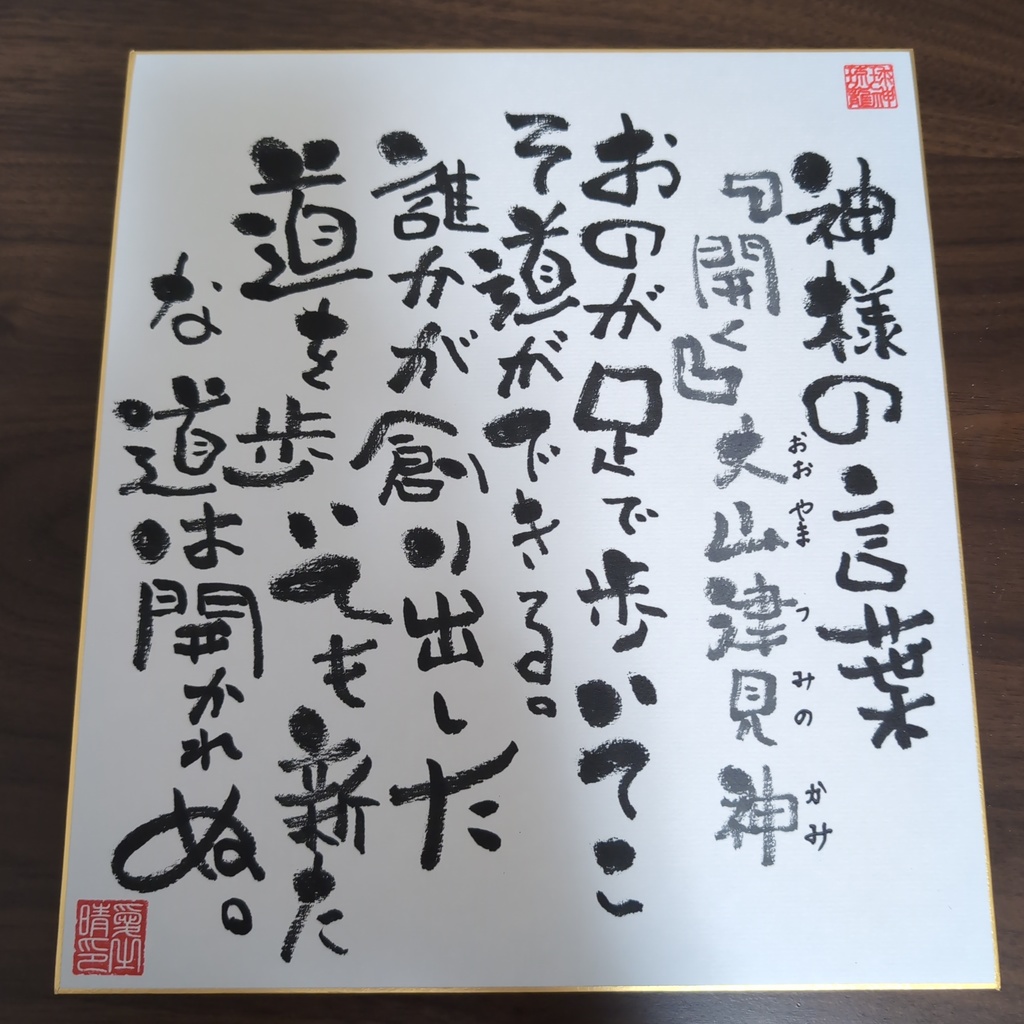 神様の言葉
『開く』大山津見神
おおやまつみのかみ
おのが足で歩いてこ
そ道ができる。
誰かが創り出した
道を歩いても新た
な道は開かれぬ。